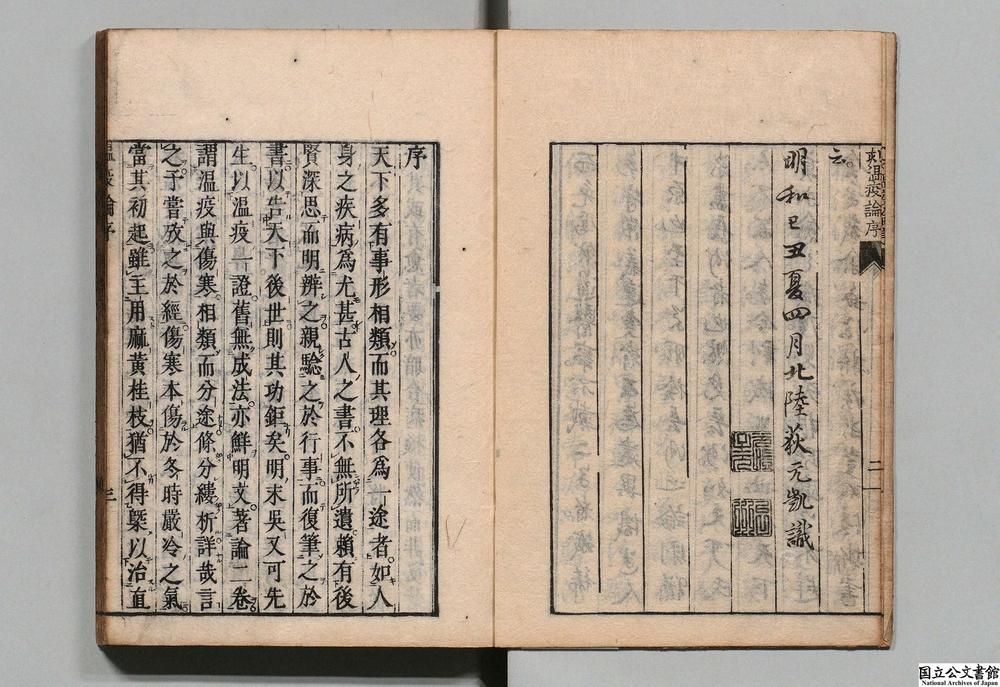 刻温疫論序
二
云
明和己丑夏四月北陸荻元凱識
序
天下多有事形相類而其理各爲一途者如人
身之疾病爲尤甚古人之書不無所遺賴有後
賢深思而明辨之親驗之於行事而復筆之於
書以告天下後世則其功鉅矣明末吳又可先
生以溫疫一證舊無成法亦鮮明文著論二卷
謂溫疫與傷寒相類而分途條分縷析詳哉言
之予嘗攷之於經傷寒本傷於冬時嚴冷之氣
當其初起雖主用麻黃桂枝猶不得槩以治直
三
国立公文書館
National Archives of Japan